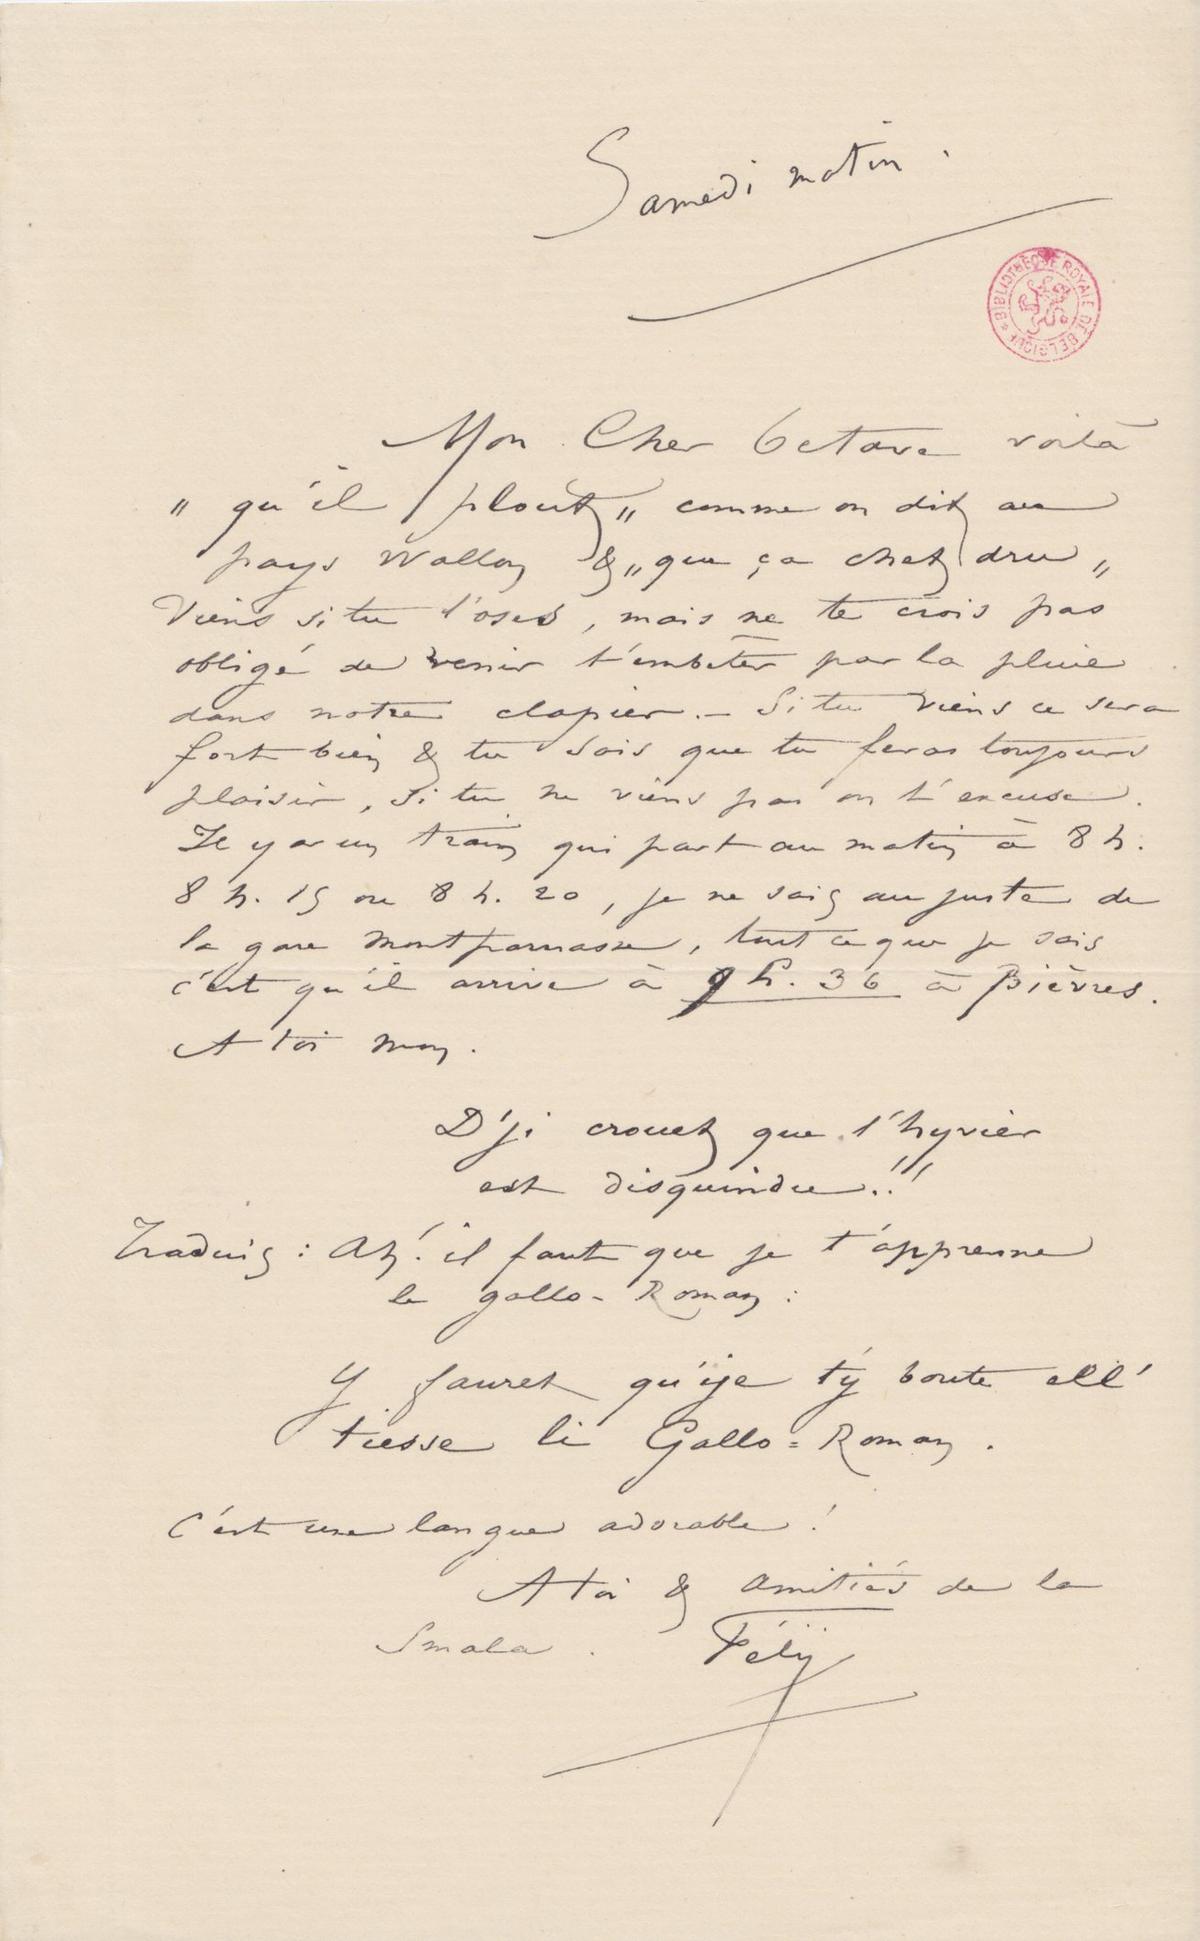 Samedi matin.
BIBLIOTHÈQUE ROYALE DE BELGIQUE
Mon Cher Octave voilà
„ qu'il plout „ comme on dit au
pays Wallon & „ que ça chet dru „
Viens si tu l'oses, mais ne te crois pas
obligé de venir t'embêter par la pluie
dans notre clapier. – Si tu viens ce sera
fort bien & tu sais que tu feras toujours
plaisir, si tu ne viens pas on t'excuse.
Il y a un train qui part au matin à 8 h.
8 h. 15 ou 8 h. 20, je ne sais au juste de
la gare Montparnasse, tout ce que je sais
c'est qu'il arrive à 9 h. 36 à Bièvres.
A toi mon.
D'ji crouet que l'hyvièr
est disquindu!!
Traduis : Ah! il faut que je t'apprenne
le gallo-Roman :
Y fauret qu'ije t'y boute ell'
tiesse li Gallo=Roman.
C'est une langue adorable !
A toi & amitiés de la
Smala. Fély